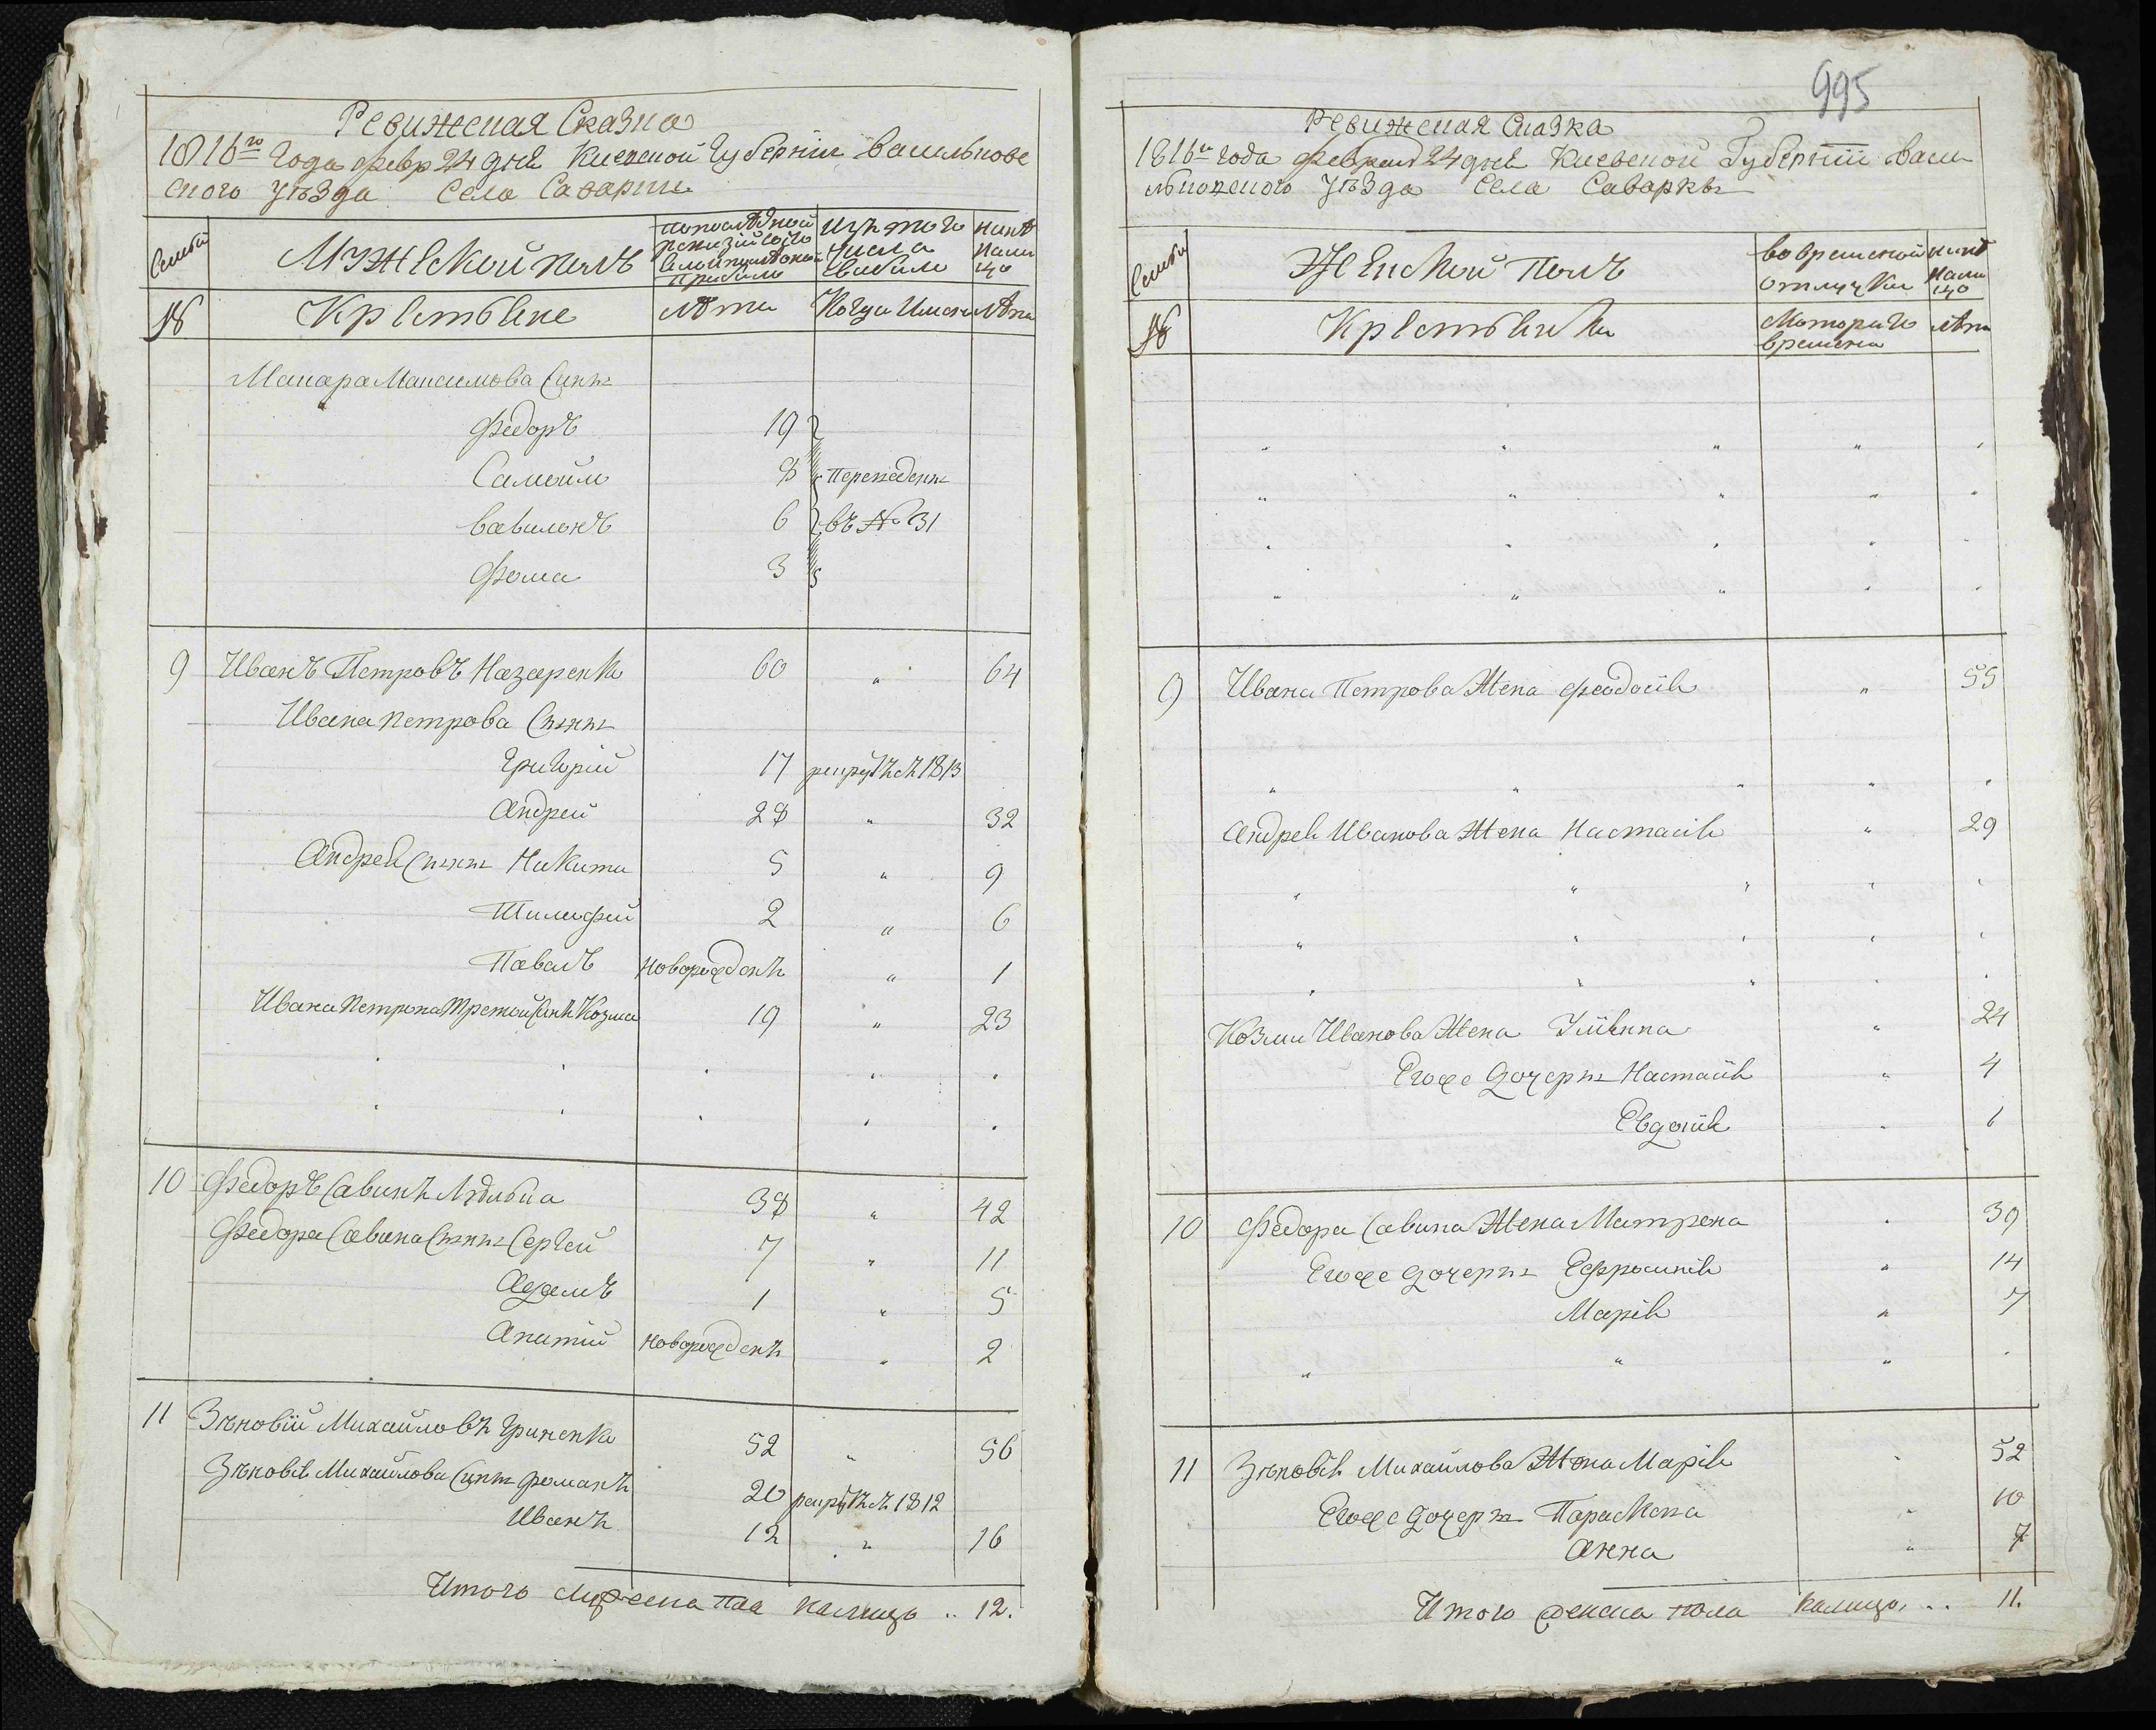 Ревижская Сказка
1816го Года Февр 24 дня Киевской Губернии Васильков
ского уѣзда Села Саварки
Семьи
Мужескои полъ
Изъ того
числа
выбыло
нынѣ
на ли
цо
№
Крестьяне
лѣта
Когда имянно
лѣта
Макара Максимова сыны
Федоръ 19
Самойло 8 Переведены
Вавилонъ 6 въ № 31
Фома 3
9 Иванъ Петровъ Назаренко 60 " 64
Ивана Петрова сыны
Григорій 17 рекрутъ съ 1813
Андрей 28 " 32
Андрея сыны Никита 5 " 9
Тимофей 2 " 6
Павелъ новорожденъ " 1
Ивана Петрова третой сынъ Козма 19 " 23
10 Федоръ Савинъ 38 " 42
Федора Савина сыны Сергей 7 " 11
Адамъ 1 " 5
новорожденъ " 2
11 Зѣновій Михайловъ Гриненко 52 " 56
Зѣновія Михайлова сыны Романъ 20 рекрутъ съ 1812
Иванъ 12 " 16
Итого мужеска пола налицо .. 12.
995
Ревижская Сказка
1816го года Февраля 24 дня Киевской Губерніи Васи
льковского уѣзда Села Саварки
Семьи
Женской Полъ
во временной
отлучки
нынѣ
на ли
цо
№
Крестьянки
Которого
времени
лѣта
9 Ивана Петрова Жена Феодосія " 55
Андрея Иванова Жена Настасія " 29
Козми Иванова Жена Уліянна " 24
Егоже дочеры Настасія " 4
Евдокія " 1
10 Федора Савина Жена Матрена " 39
Егоже дочеры Ефросинія " 14
Марія " 7
11 Зѣновія Михайлова Жена Марія " 52
Егоже дочеры Параскева " 10
Анна " 7
Итого женска пола налицо, .. 11.